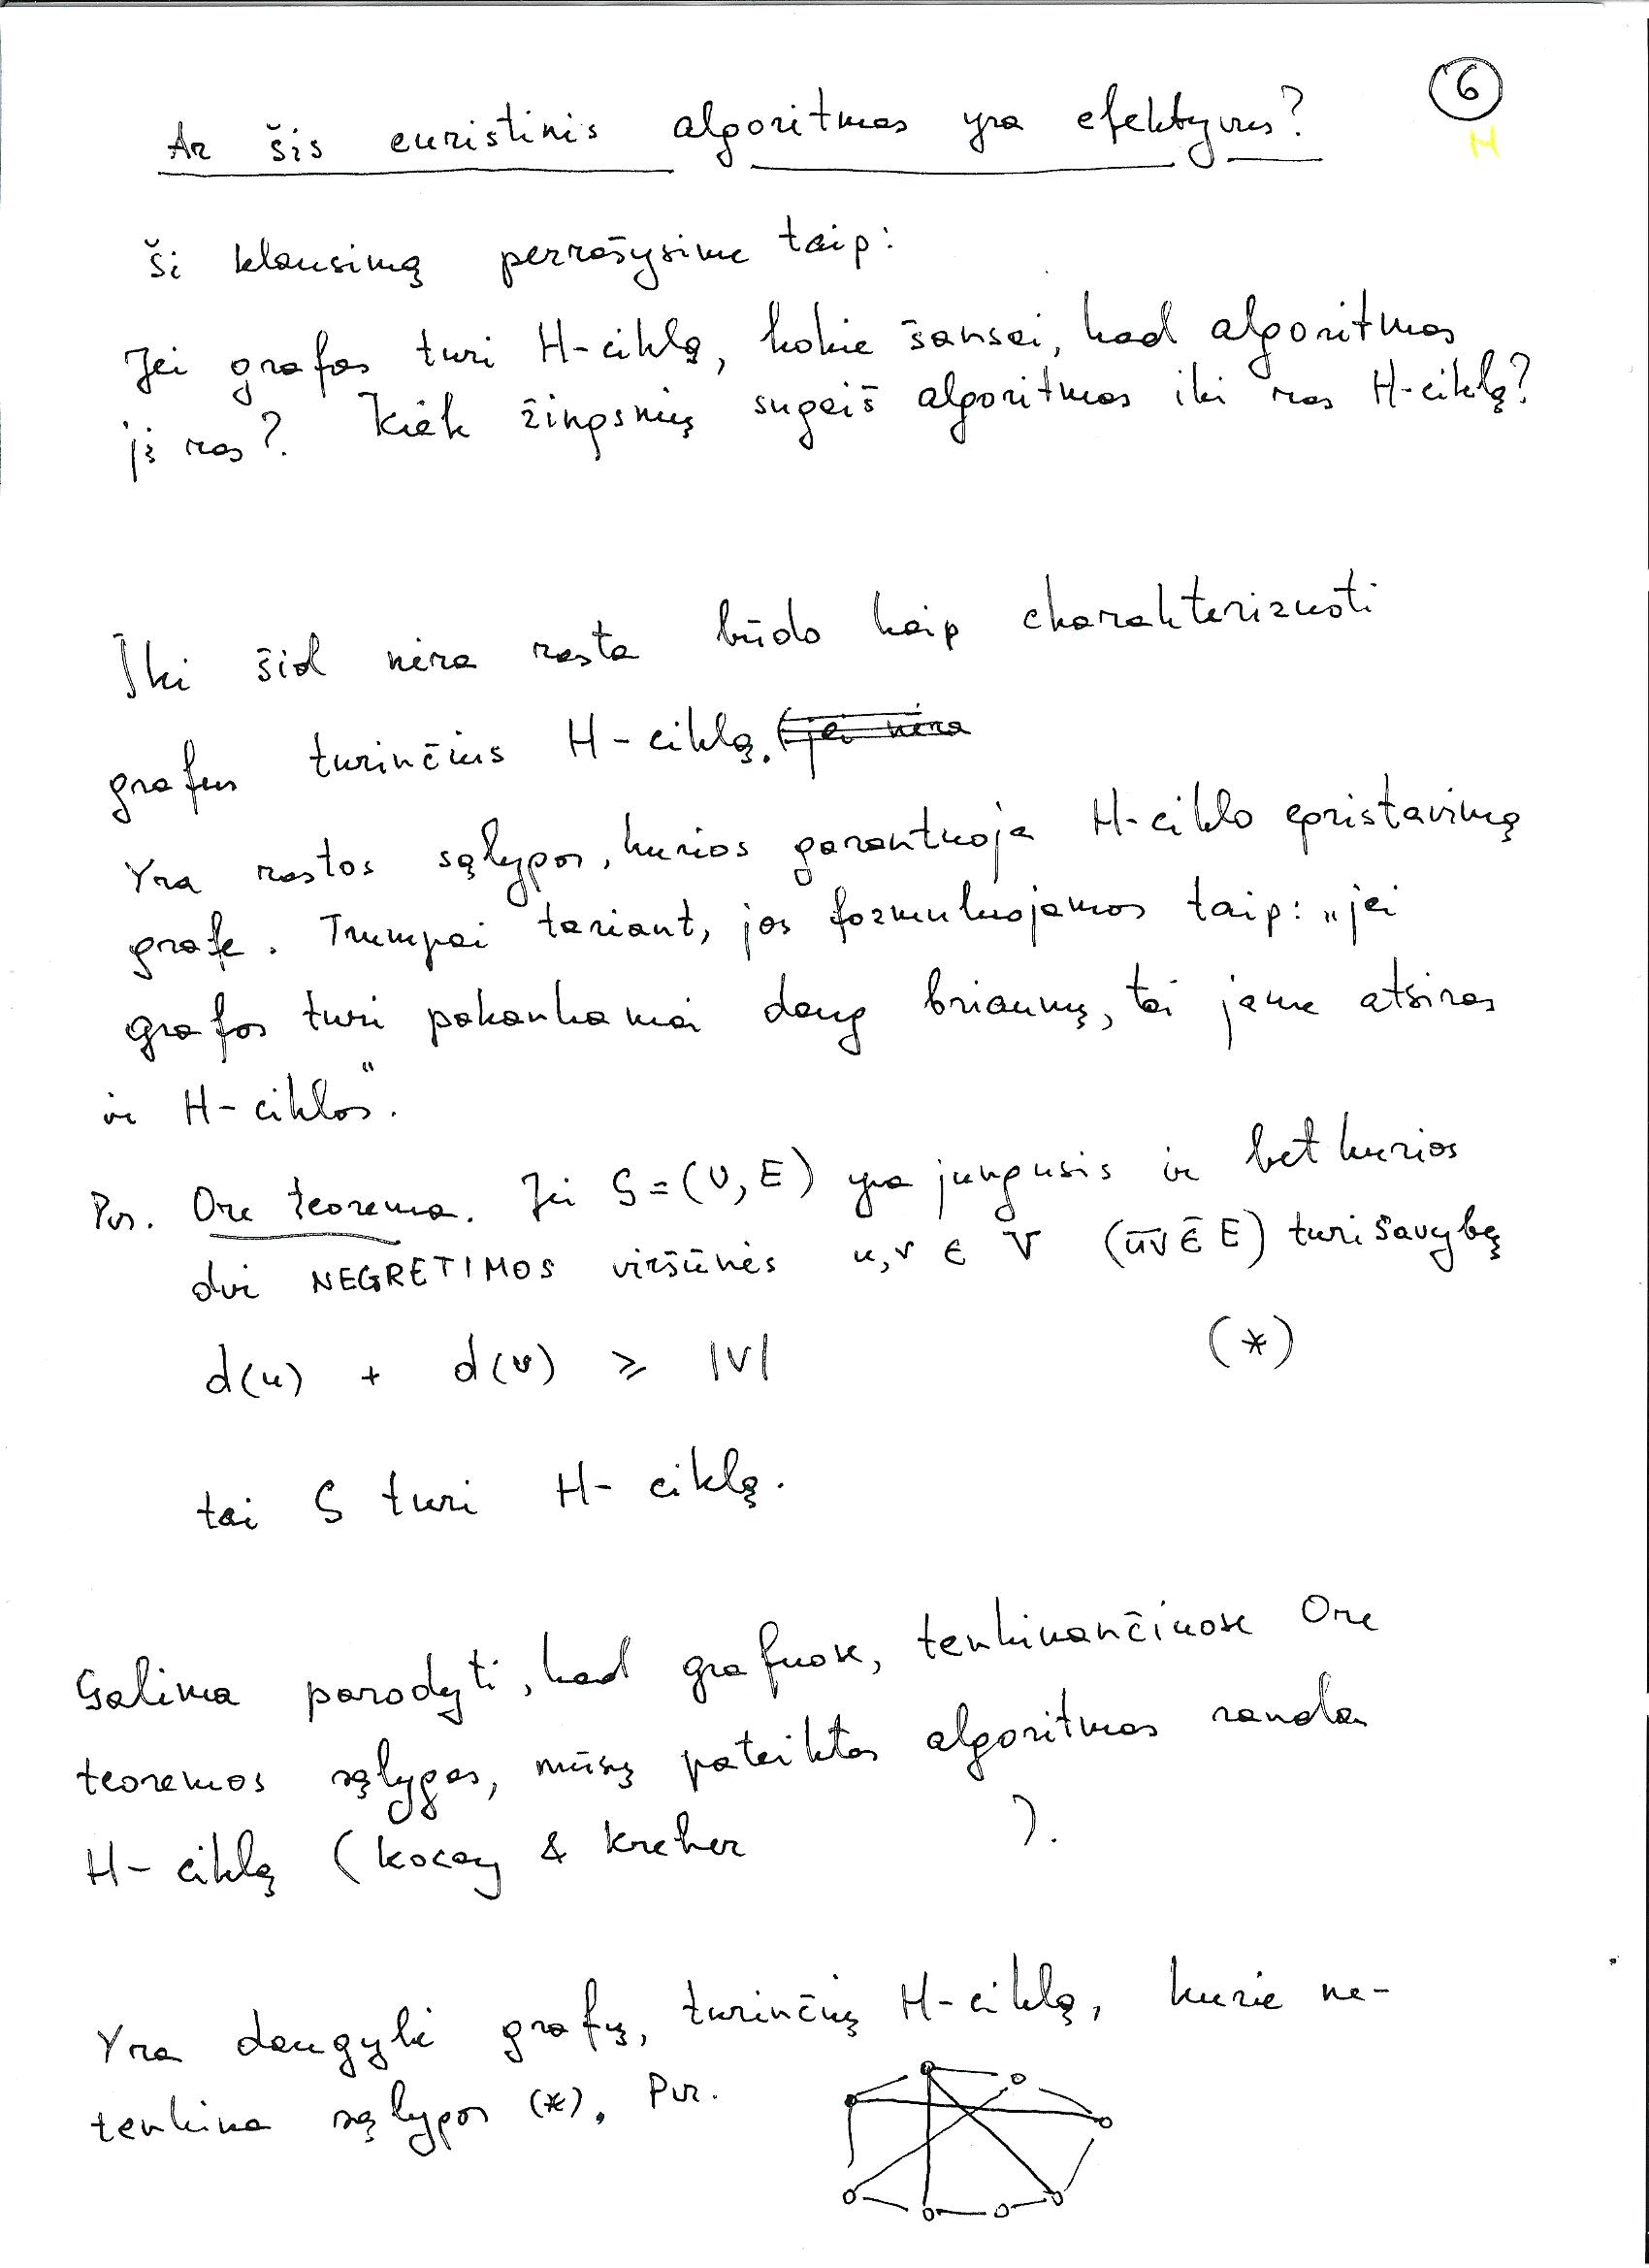 6
H
Ar šis euristinis algoritmas yra efektyvus?
Šį klausimą perrašysime taip:
Jei grafas turi H-ciklą, kokie šansai, kad algoritmas
jį ras? Kiek žingsnių sugaiš algoritmas iki ras H-ciklą?
Iki šiol nėra rasta būdo kaip charakterizuoti
grafus turinčius H-ciklą. (jei nėra
Yra rastos sąlygos, kurios garantuoja H-ciklo egzistavimą
grafe. Trumpai tariant, jos formuluojamos taip: „jei
grafas turi pakankamai daug briaunų, tai jame atsiras
ir H-ciklas".
Pvz. Ore teorema. Jei G=(V,E) yra jungusis ir bet kurios
dvi NEGRETIMOS viršūnės u,v ∈ V (uv ∉ E) turi savybę
d(u) + d(v) ≥ |V| (*)
tai G turi H-ciklą.
Galima parodyti, kad grafuose, tenkinančiuose Ore
teoremos sąlygas, mūsų pateiktas algoritmas randa
H-ciklą (Kocay & Kreher ).
Yra daugybė grafų, turinčių H-ciklą, kurie ne-
tenkina sąlygos (*). Pvz.